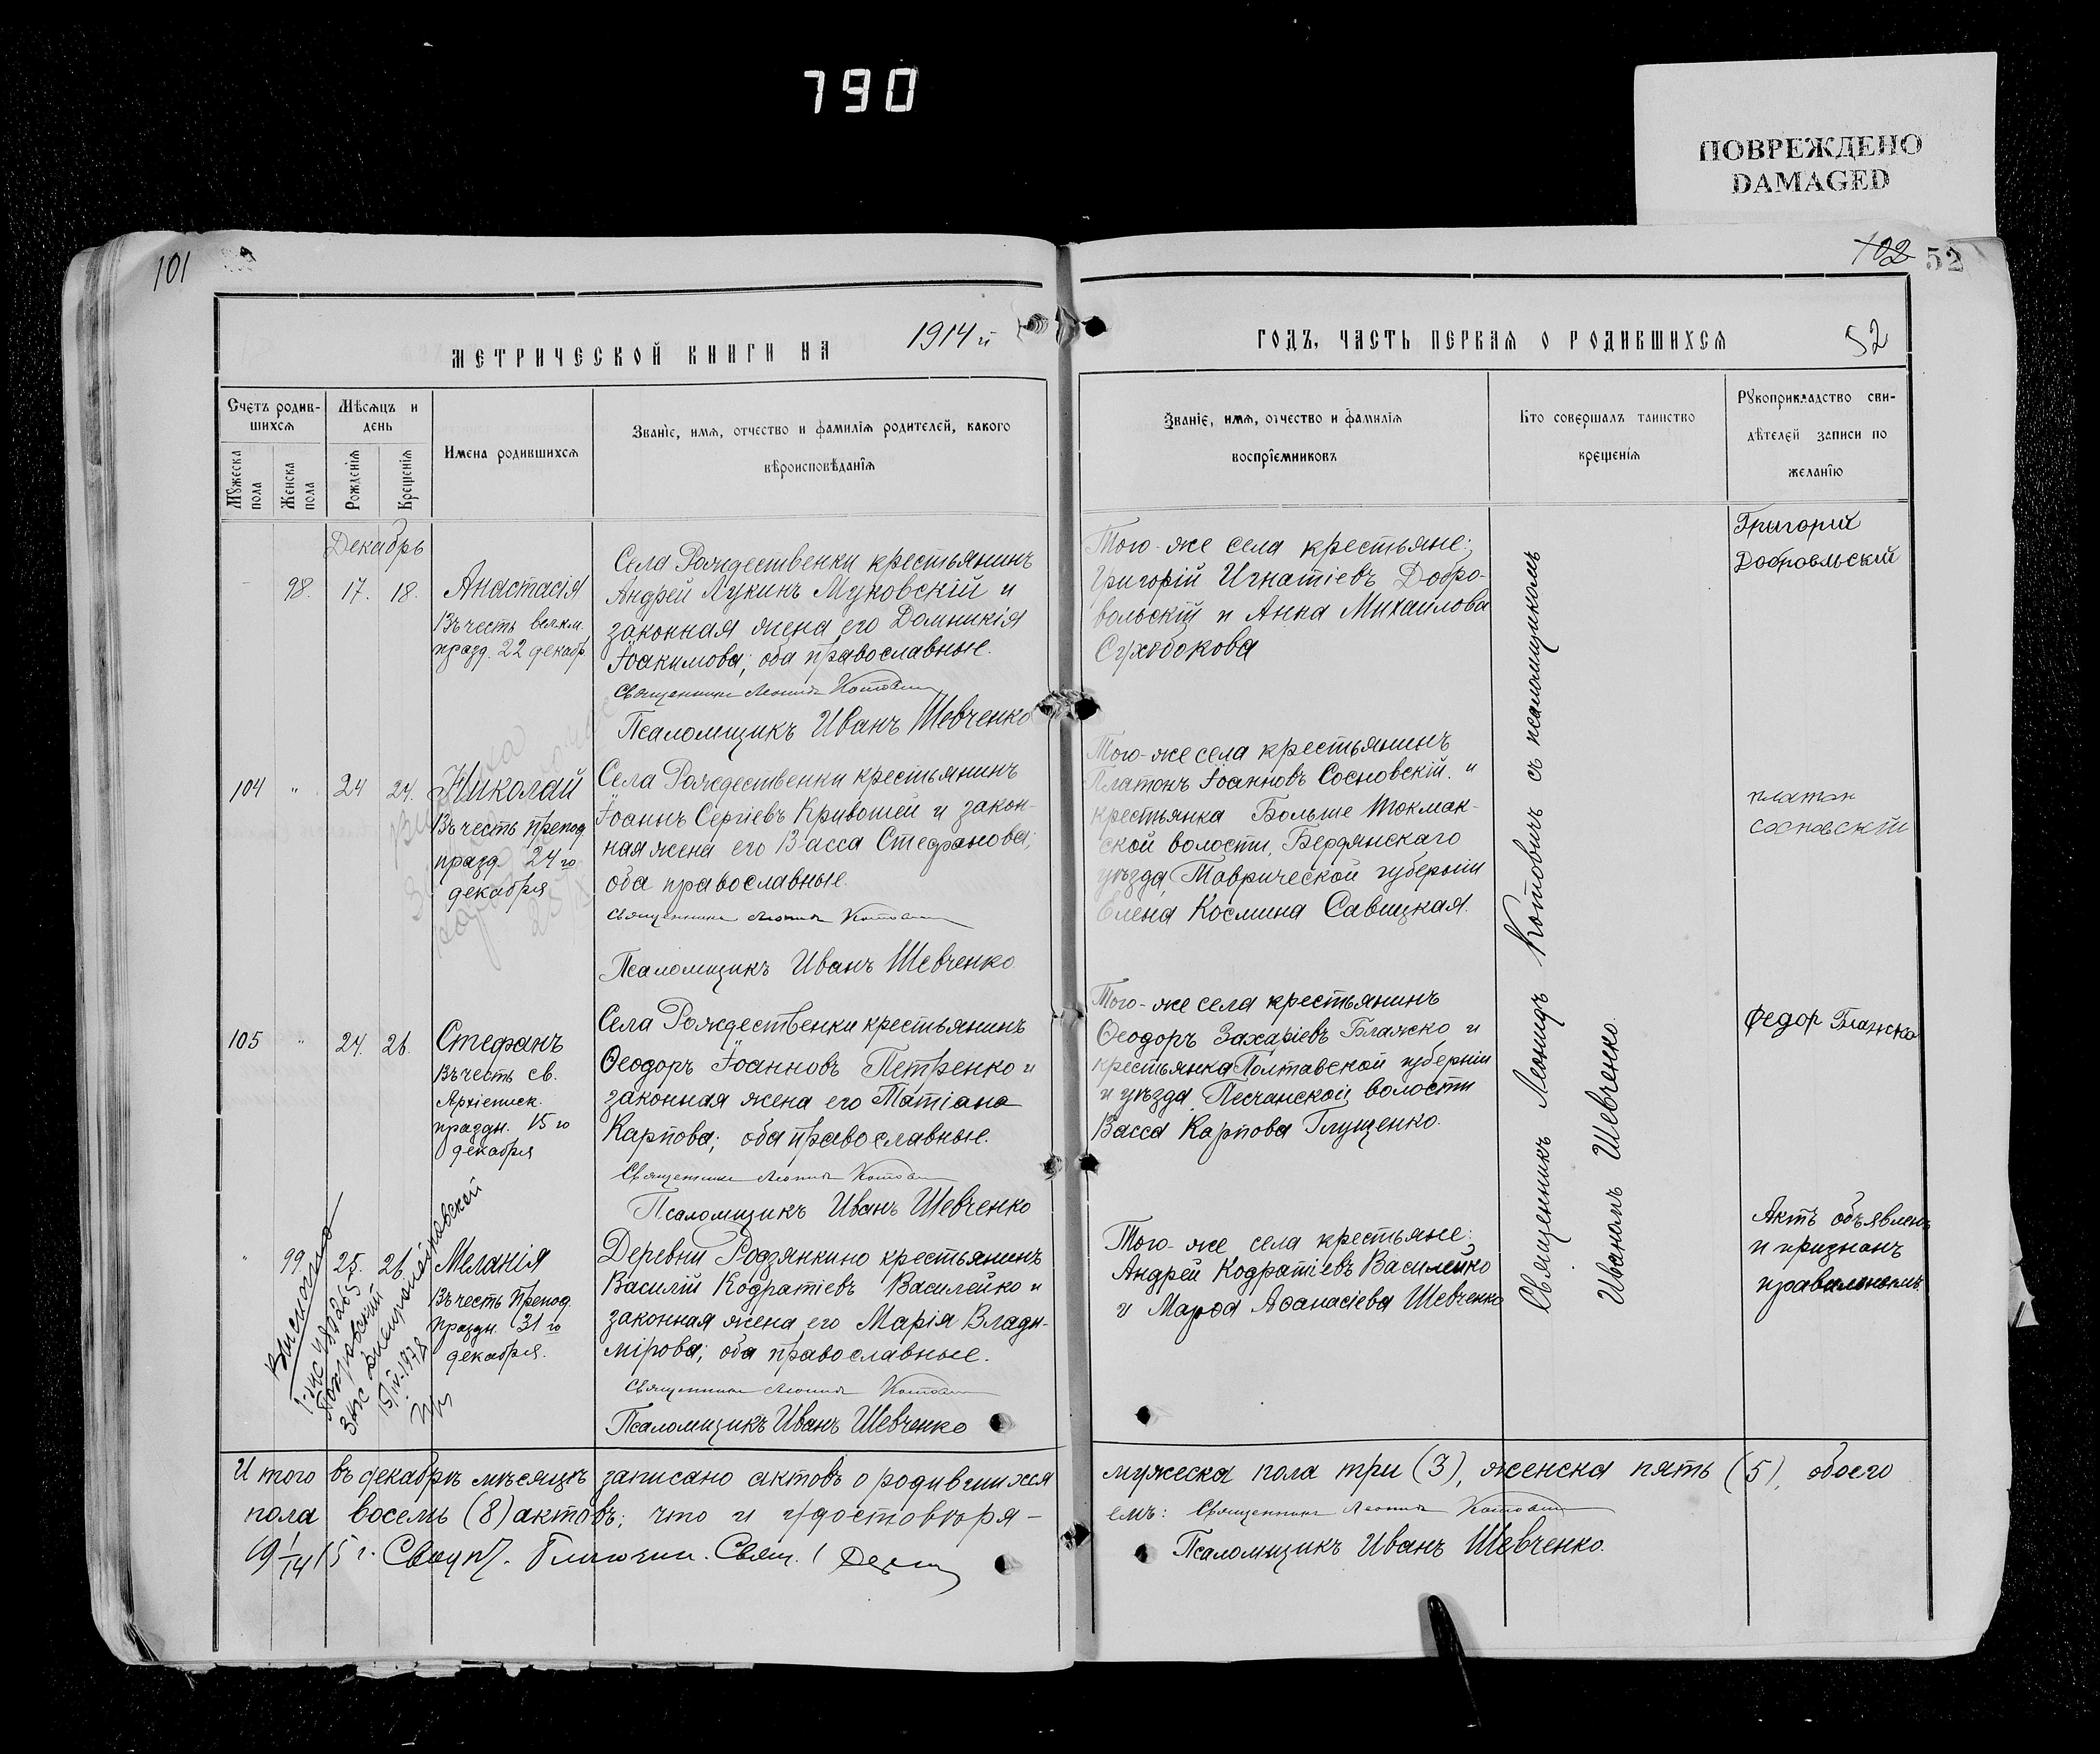 790
ПОВРЕЖДЕНО
DAMAGED
101
102
52
МЕТРИЧЕСКОЙ КНИГИ НА 1914 й
ГОДЪ, ЧАСТЬ ПЕРВАЯ О РОДИВШИХСЯ
52
Счетъ родив-
шихся
Мужеска пола
Женска пола
Мѣсяцъ и
день
Рожденія
Крещенія
Имена родившихся
Званіе, имя, отчество и фамилія родителей, какого
вѣроисповѣданія
Званіе, имя, отчество и фамилія
воспріемниковъ
Кто совершалъ таинство
крещенія
Рукоприкладство сви-
дѣтелей записи по
желанію
Декабрь
98. 17. 18.
Анастасія
Въ честь вел.км.
празд. 22 декабр
Села Рождественки крестьянинъ
Андрей Лукинъ Муковскій и
законная жена его Домникія
Іоакимова; оба православные.
Священникъ Леонидъ Котович
Псаломщикъ Иванъ Шевченко
Того-же села крестьяне:
Григорій Игнатіевъ Добро-
вольскій и Анна Михаилова
Сухобокова
Григорій
Добровльскій
104 " 24 24.
Николай
Въ честь препод.
празд. 24 го
декабря
Села Рождественки крестьянинъ
Іоаннъ Сергіевъ Кривошей и закон-
ная жена его Васса Стефанова;
оба православные.
Священникъ Леонидъ Котович
Псаломщикъ Иванъ Шевченко
Того-же села крестьянинъ
Платонъ Іоанновъ Сосновскій. и
крестьянка Больше Токмак-
ской волости, Бердянскаго
уѣзда, Таврической губерніи
Елена Космина Савицкая.
платон
сосновскій
105 " 24. 26.
Стефанъ
Въ честь св.
Архіеписк.
праздн. 15 го
декабря
Села Рождественки крестьянинъ
Ѳеодоръ Іоанновъ Петренко и
законная жена его Татіана
Карпова; оба православные.
Священникъ Леонидъ Котович
Псаломщикъ Иванъ Шевченко
Того-же села крестьянинъ
Ѳеодоръ Захаріевъ Блажко и
крестьянка Полтавской губерніи
и уѣзда Песчанской волости
Васса Карпова Глущенко.
Федор Блажко
" 99. 25. 26.
Меланія
Въ честь Препод.
праздн. 31 го
декабря.
Деревни Родзянкино крестьянинъ
Василій Кодратіевъ Василейко и
законная жена его Марія Влади-
мірова; оба православные.
Священникъ Леонидъ Котович
Псаломщикъ Иванъ Шевченко
Того-же села крестьяне:
Андрей Кодратіевъ Василейко
и Марѳа Аѳанасіева Шевченко
Актъ объявленъ
и признанъ
правильнымъ.
Священникъ Леонидъ Котовичъ съ псаломщикомъ
Иваномъ Шевченко.
Выписано
15/IV-1978
Итого въ декабрѣ мѣсяцѣ записано актовъ о родившихся мужеска пола три (3), женска пять (5), обоего
пола восемь (8) актовъ; что и удостовѣря-
емъ: Священникъ Леонидъ Котович
Псаломщикъ Иванъ Шевченко.